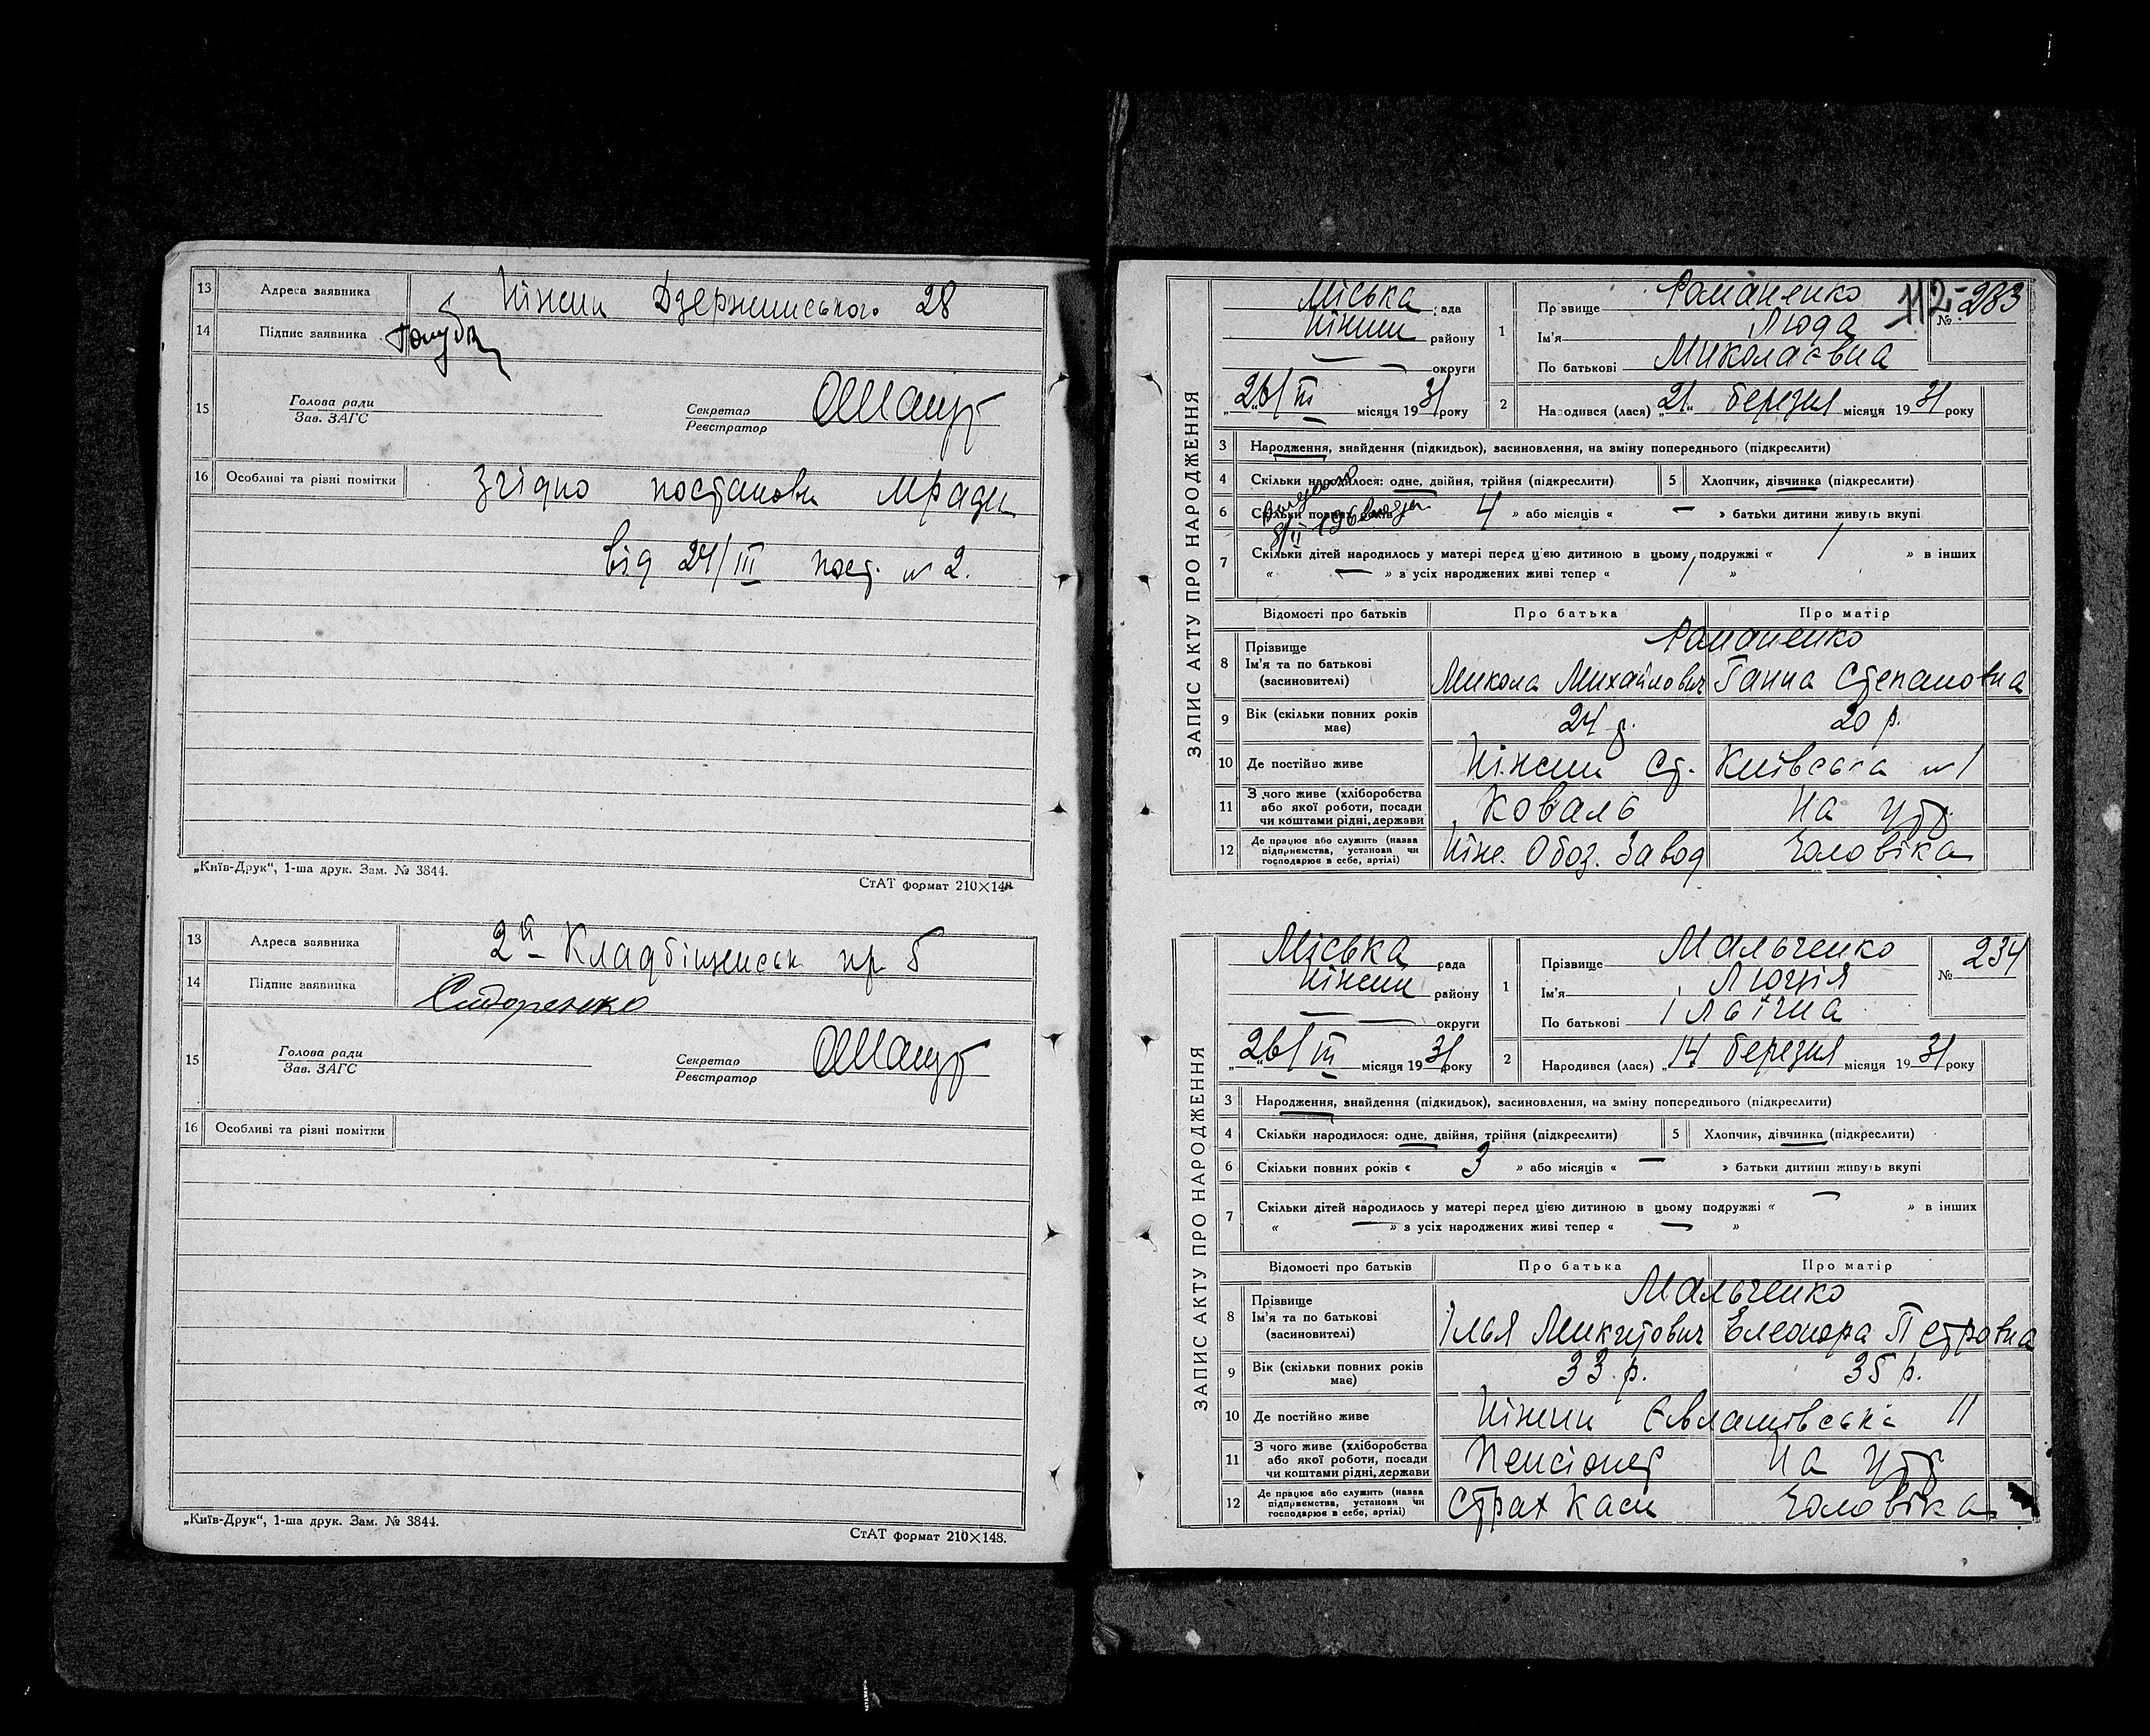 13 Адреса заявника Ніжин Дзержинського 28
14 Підпис заявника
15 Голова ради Секретар
Зав. ЗАГС Реєстратор
16 Особливі та різні помітки Згідно постанови мради
від 24/III пост. № 2.
„Київ-Друк“, 1-ша друк. Зам. № 3844.
СтАТ формат 210×148
13 Адреса заявника 2й Кладбіщенськ пр 5
14 Підпис заявника Сидоренко
15 Голова ради Секретар
Зав. ЗАГС Реєстратор
16 Особливі та різні помітки
„Київ-Друк“, 1-ша друк. Зам. № 3844.
СтАТ формат 210×148.
ЗАПИС АКТУ ПРО НАРОДЖЕННЯ
Міська рада
Ніжин району
— — округи
„26/III місяця 1931 року
1 Прізвище Романенко
Ім'я Люда
По батькові Миколаєвна
112- № 233
2 Народився (лася) „21“ березня місяця 1931 року
3 Народження, знайдення (підкидьок), засиновлення, на зміну попереднього (підкреслити)
4 Скільки народилося: одне, двійня, трійня (підкреслити) 5 Хлопчик, дівчинка (підкреслити)
6 Скільки повних років 4 » або місяців « — » батьки дитини живуть вкупі
7 Скільки дітей народилось у матері перед цією дитиною в цьому подружжі « 1 » в інших
« — » з усіх народжених живі тепер « 1 »
Відомості про батьків Про батька Про матір
8 Прізвище Романенко
Ім'я та по батькові (засиновителі) Микола Михайлович Ганна Степановна
9 Вік (скільки повних років має) 24 р. 20 р.
10 Де постійно живе Ніжин Ст. Київська № 1
11 З чого живе (хліборобства або якої роботи, посади чи коштами рідні, держави Коваль На утр
12 Де працює або служить (назва підприємства, установи чи господарює в себе, артілі) Ніж. Обоз. Завод чоловіка
ЗАПИС АКТУ ПРО НАРОДЖЕННЯ
Міська рада
Ніжин району
— — округи
„26/III місяця 1931 року
1 Прізвище Мальченко
Ім'я Люція
По батькові Ільїчна
№ 234
2 Народився (лася) „14 березня місяця 1931 року
3 Народження, знайдення (підкидьок), засиновлення, на зміну попереднього (підкреслити)
4 Скільки народилося: одне, двійня, трійня (підкреслити) 5 Хлопчик, дівчинка (підкреслити)
6 Скільки повних років « 3 » або місяців « — » батьки дитини живуть вкупі
7 Скільки дітей народилось у матері перед цією дитиною в цьому подружжі « — » в інших
« — » з усіх народжених живі тепер « — »
Відомості про батьків Про батька Про матір
8 Прізвище Мальченко
Ім'я та по батькові (засиновителі) Ілья Микитович Елеонора Петровна
9 Вік (скільки повних років має) 33 р. 35 р.
10 Де постійно живе Ніжин Євлашівська 11
11 З чого живе (хліборобства або якої роботи, посади чи коштами рідні, держави Пенсіонер На утр
12 Де працює або служить (назва підприємства, установи чи господарює в себе, артілі) Страх каси чоловіка